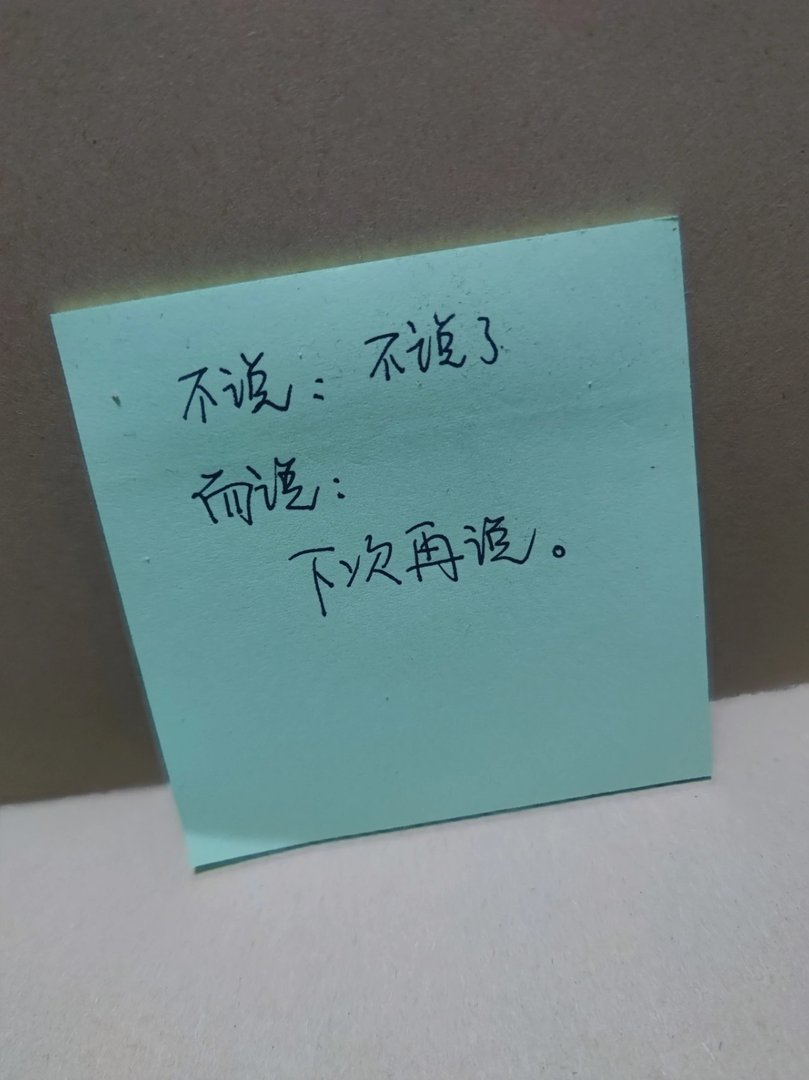 不说：不说了
而说：
下次再说。